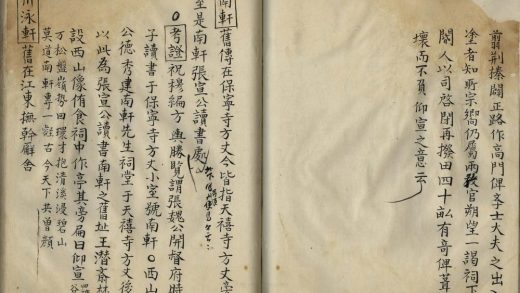 翦荆榛闢正路作高門俾文士大夫之出
塗者知所宗嚮仍屬兩教官朔望一謁祠下
閽人以司啓閉再撥田四十畝有奇俾葺
壞而不負仰宣之意云
南軒 舊傳在保寧寺方丈今皆指天禧寺方丈
室是南軒張宣公讀書處
考證 祝穆編方輿勝覽謂張魏公開督府時
子讀書于保寧寺方丈小室號南軒○西山
公德秀建南軒先生祠堂于天禧寺方丈後
以此為張宣公讀書南軒之舊址王潛齋
設西山像侑食祠中作亭其旁扁曰仰宣
万松盤嶺勢田環才抱清淡漫碧山
莫道南軒專一壑古今天下共曾顏
川泳軒 舊在江東撫幹廨舍